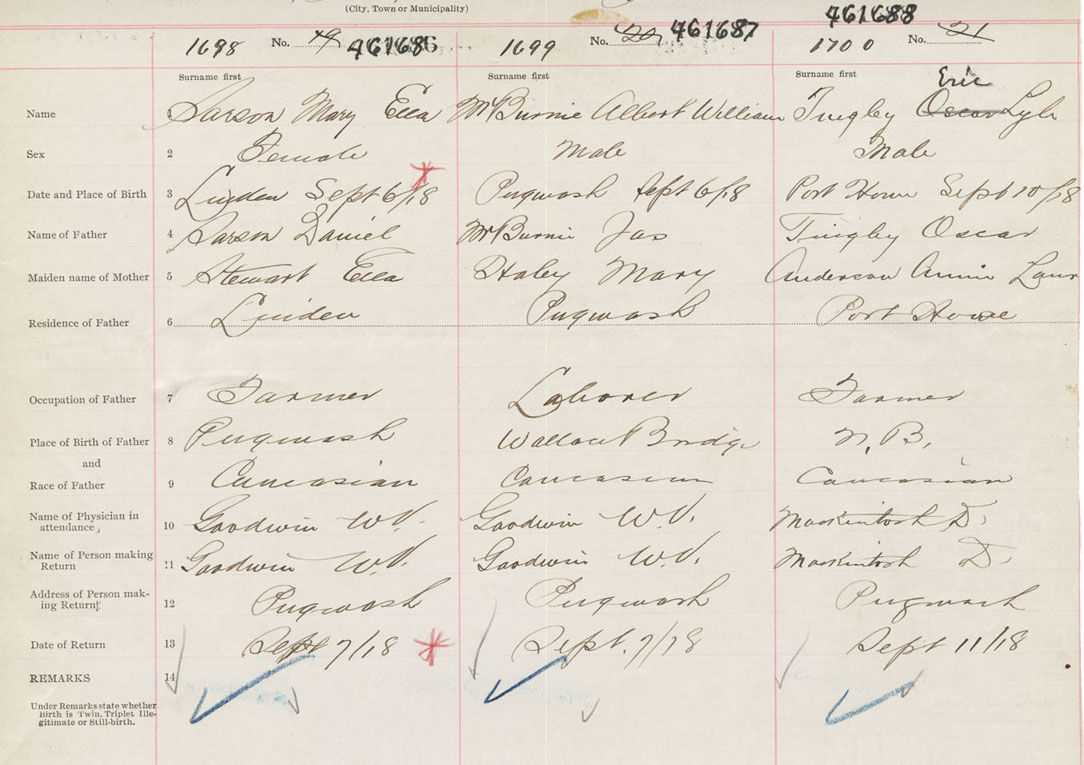 (City, Town or Municipality)
1698 No. 19 461686 1699 No. 20 461687 1700 No. 21 461688
Surname first Surname first Surname first
Eric
Name 1 Larson Mary Ella McBurnie Albert William Tingley Oscar Lyle
Sex 2 Female Male Male
Date and Place of Birth 3 Linden Sept 6/18 Pugwash Sept 6/18 Port Howe Sept 10/18
Name of Father 4 Larson Daniel McBurnie Jas Tingley Oscar
Maiden name of Mother 5 Stewart Ella Haley Mary Anderson Annie Laur
Residence of Father 6 Linden Pugwash Port Howe
Occupation of Father 7 Farmer Laborer Farmer
Place of Birth of Father 8 Pugwash Wallace Bridge N.B.
and
Race of Father 9 Caucasian Caucasian Caucasian
Name of Physician in
attendance, 10 Goodwin W.V. Goodwin W.V. Mackintosh D.
Name of Person making
Return 11 Goodwin W.V. Goodwin W.V. Mackintosh D.
Address of Person mak-
ing Return 12 Pugwash Pugwash Pugwash
Date of Return 13 Sept 7/18 Sept. 7/18 Sept 11/18
REMARKS 14
Under Remarks state whether
Birth is Twin, Triplet Ille-
gitimate or Still-birth.